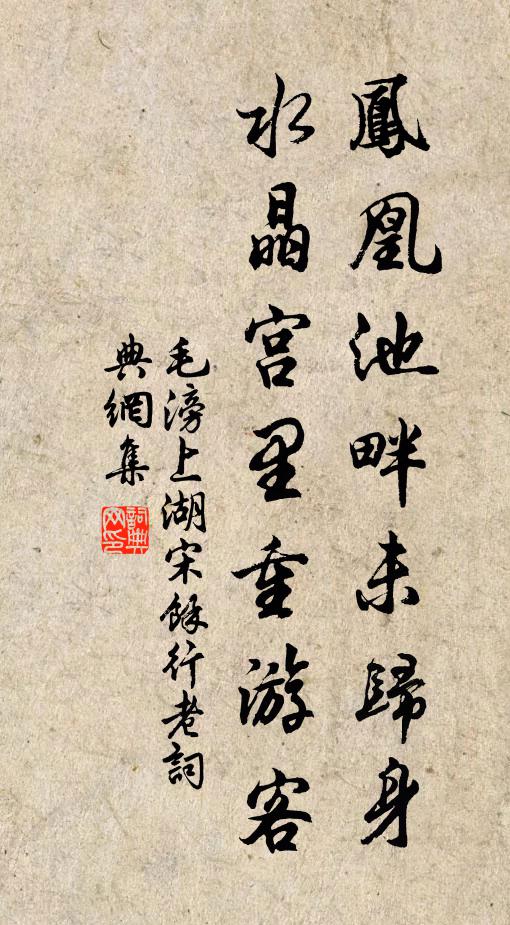 鳳凰池畔未歸身
水晶宮里重游客
毛滂上湖宋餘行老詞
典網集
詞典網印